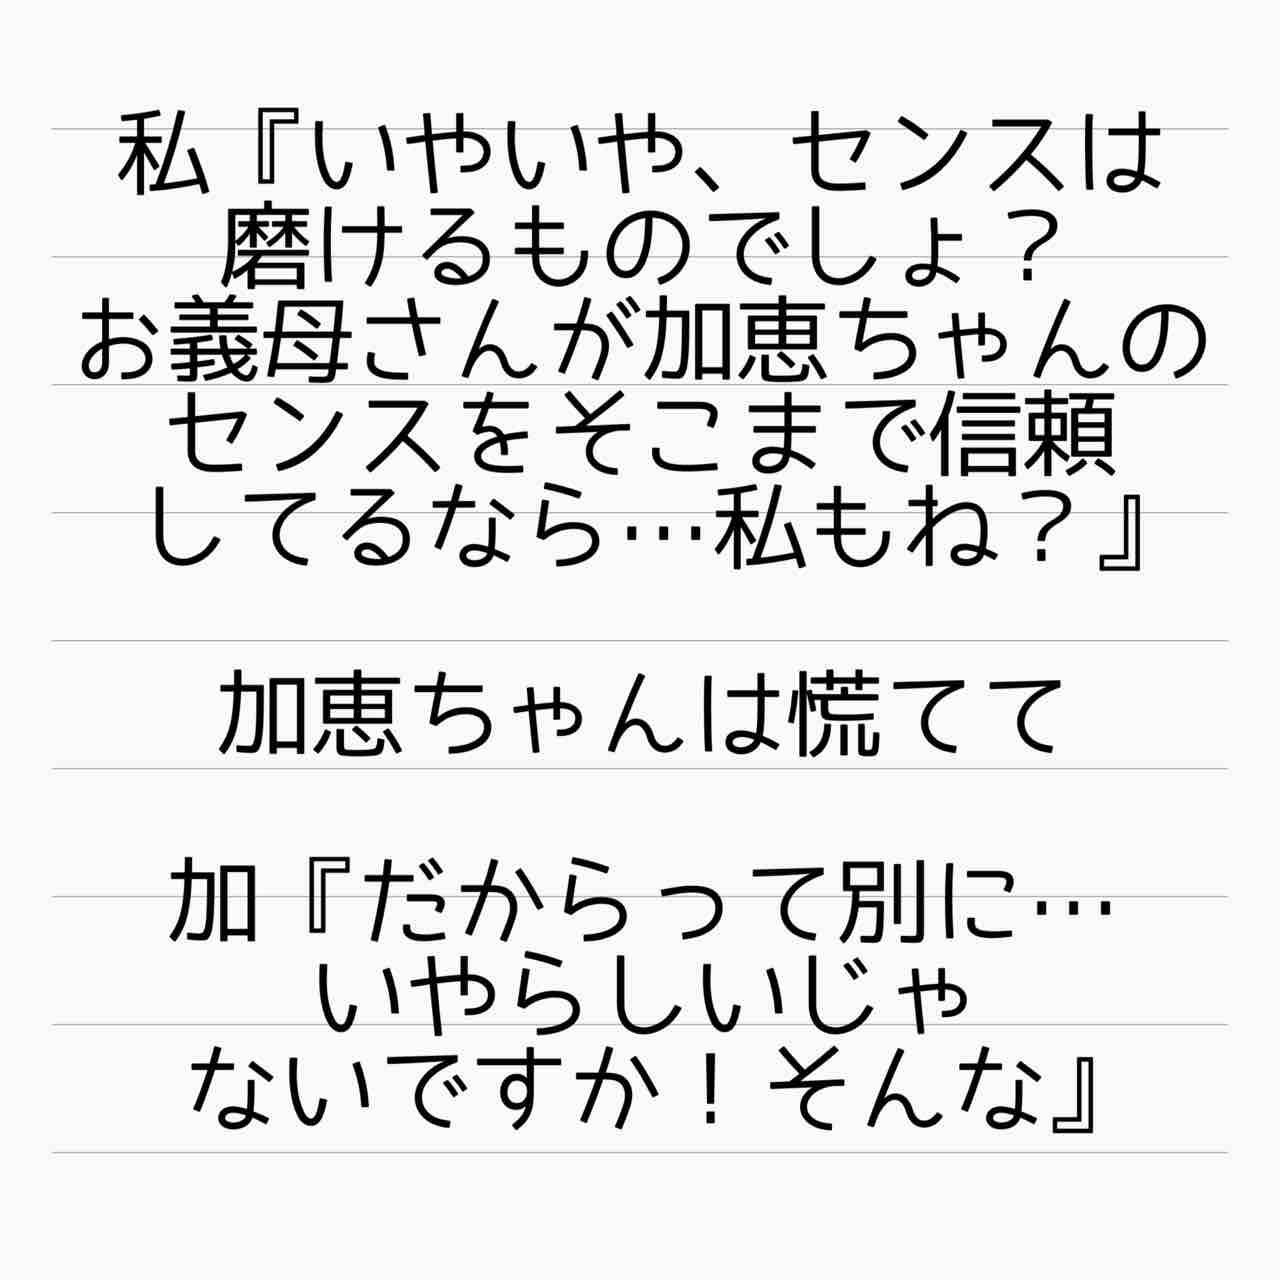 私『いやいや、センスは
磨けるものでしょ？
お義母さんが加恵ちゃんの
センスをそこまで信頼
してるなら…私もね？』
加恵ちゃんは慌てて
加『だからって別に…
いやらしいじゃ
ないですか！そんな』